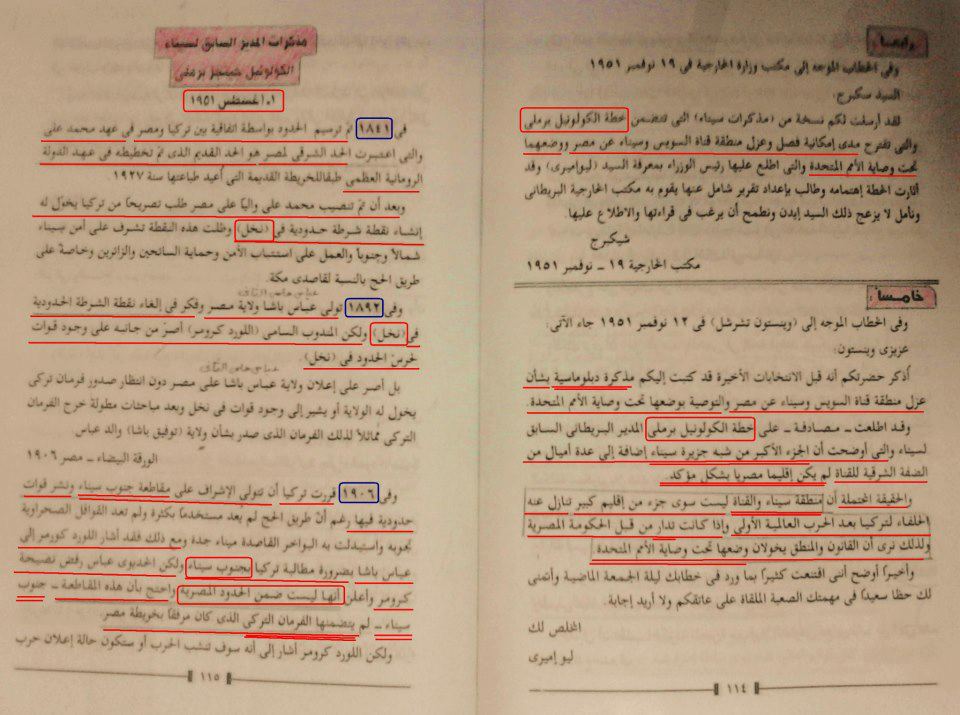 رابعـا
وفى الخطاب الموجه إلى مكتب وزارة الخارجية فى ١٩ نوفمبر ١٩٥١
السيد سكبرج،
لقد أرسلت لكم نسخة من (مذكرات سيناء) التى تتضمن خطة الكولونيل برملى
والتى تقترح مدى إمكانية فصل وعزل منطقة قناة السويس وسيناء عن مصر ووضعهما
تحت وصاية الأمم المتحدة والتى اطلع عليها رئيس الوزراء بمعرفة السيد (ليواميرى) وقد
أثارت الخطة إهتمامه وطالب بإعداد تقرير شامل عنها يقوم به مكتب الخارجية البريطانى
ونأمل لا يزعج ذلك السيد إيدن ونطمح أن يرغب فى قراءتها والاطلاع عليها.
شيكبرج
مكتب الخارجية ١٩ ـ نوفمبر ١٩٥١
خامسـا:
وفى الخطاب الموجه إلى (وينستون تشرشل) فى ١٢ نوفمبر ١٩٥١ جاء الآتى:
عزيزى وينستون:
أذكر حضرتكم أنه قبل الانتخابات الأخيرة قد كتبت إليكم مذكرة دبلوماسية بشأن
عزل منطقة قناة السويس وسيناء عن مصر والتوصية بوضعها تحت وصاية الأمم المتحدة.
وقـد اطلعت ـ مـصـادفـة ـ على خطة الكولونيل برملى المدير البريطانى السابق
لسيناء والتى أوضحت أن الجزء الأكبر من شبه جزيرة سيناء إضافة إلى عدة أميال من
الضفة الشرقية للقناة لم يكن إقليما مصريا بشكل مؤكد.
والحقيقة المحتملة أن منطقة سيناء والقناة ليست سوى جزء من إقليم كبير تنازل عنه
الحلفاء لتركيا بعد الحرب العالمية الأولى وإذا كانت تدار من قبل الحكومة المصرية
ولذلك نرى أن القانون والمنطق يخولان وضعها تحت وصاية الأمم المتحدة.
وأخيرًا أوضح أننى اقتنعت كثيرًا بما ورد فى خطابك ليلة الجمعة الماضية وأتمنى
لك حظا سعيدًا فى مهمتك الصعبة الملقاة على عاتقكم ولا أريد إجابة.
المخلص لك
ليو إميرى
١١٤
مذكرات المدير السابق لسيناء
الكولونيل برملى
١٠ أغسطس ١٩٥١
فى ١٨٤١ تم ترسيم الحدود بواسطة اتفاقية بين تركيا ومصر فى عهد محمد على
والتى اعتبرت الحد الشرقى لمصر هو الحد القديم الذى تم تخطيطه فى عهد الدولة
الرومانية العظمى طبقا للخريطة القديمة التى أعيد طباعتها سنة ١٩٢٧.
وبعد أن تم تنصيب محمد على واليًا على مصر طلب تصريحًا من تركيا يخول له
إنشاء نقطة شرطة حدودية فى (نخل) وظلت هذه النقطة تشرف على أمن سيناء
شمالاً وجنوبًا والعمل على استتباب الأمن وحماية السائحين والزائرين وخاصة على
طريق الحج بالنسبة لقاصدى مكة.
عباس حلمى الثانى
وفى ١٨٩٢ تولى عباس باشا ولاية مصر وفكر فى إلغاء نقطة الشرطة الحدودية
فى (نخل) ولكن المندوب السامى (اللورد كرومر) أصر من جانبه على وجود قوات
لحرس الحدود فى (نخل).
عباس حلمى الثانى
بل أصر على إعلان ولاية عباس باشا على مصر دون انتظار صدور فرمان تركى
يخول له الولاية أو يشير إلى وجود قوات فى نخل وبعد مباحثات مطولة خرج الفرمان
التركى مماثلاً لذلك الفرمان الذى صدر بشأن ولاية (توفيق باشا) والد عباس.
الورقة البيضاء ـ مصر ١٩٠٦
وفى ١٩٠٦ قررت تركيا أن تتولى الإشراف على مقاطعة جنوب سيناء ونشر قوات
حدودية فيها رغم أن طريق الحج لم يعد مستخدمًا بكثرة ولم تعد القوافل الصحراوية
تجوبه واستبدلت به البواخر القاصدة ميناء جدة ومع ذلك فقد أشار اللورد كورمر إلى
عباس باشا بضرورة مطالبة تركيا بجنوب سيناء ولكن الخديوى عباس رفض نصيحة
كرومر وأعلن أنها ليست ضمن الحدود المصرية واحتج بأن هذه المقاطعة ـ جنوب
سيناء ـ لم يتضمنها الفرمان التركى الذى كان مرفقًا بخريطة مصر.
ولكن اللورد كرومر أشار إلى أنه سوف تنشب الحرب أو ستكون حالة إعلان حرب
١١٥